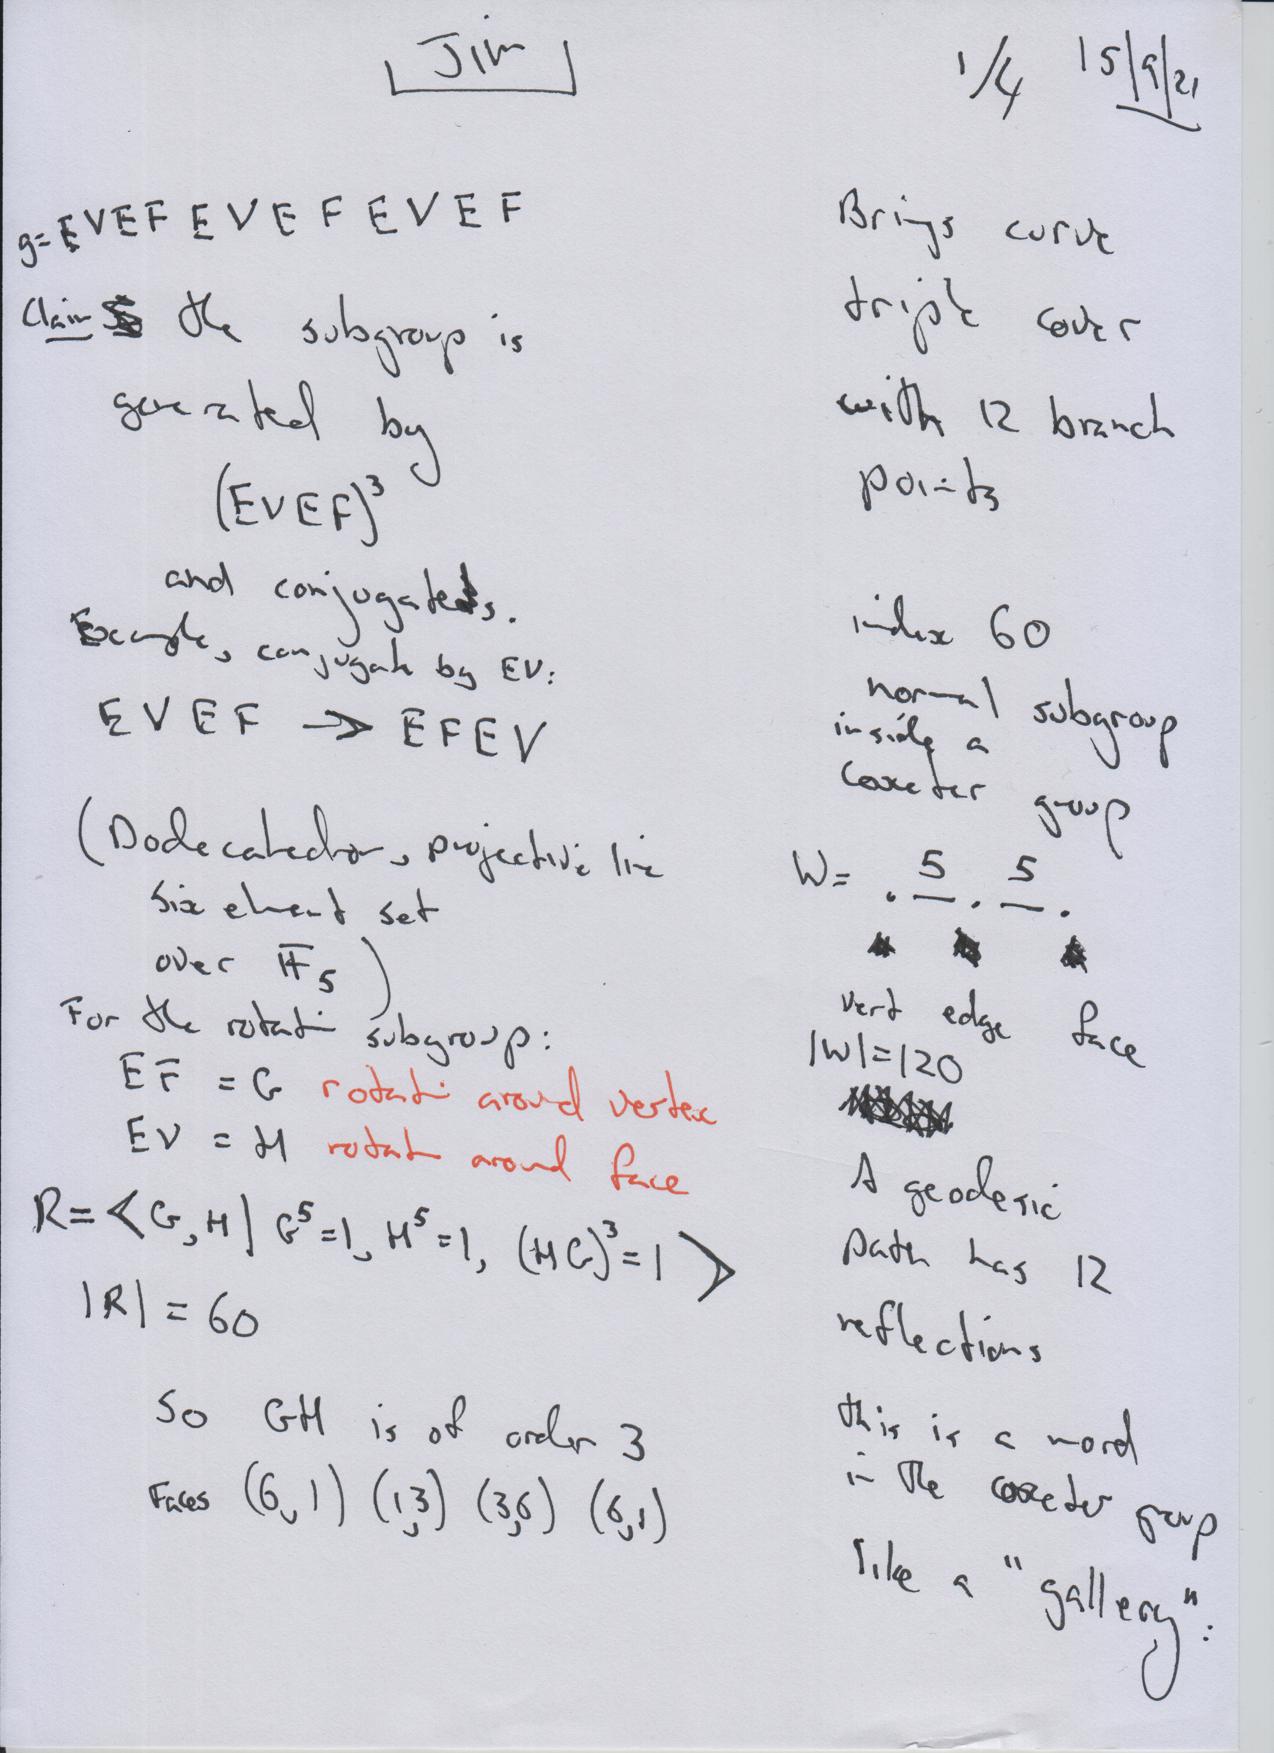 Jim
1/4 15/9/21
g= EVEF EVEF EVEF
Claim the subgroup is
generated by
(EVEF)³
and conjugates.
Example, conjugate by EV:
EVEF → EFEV
(Dodecahedron, projective line
six element set
over F₅)
For the rotation subgroup:
EF = G rotation around vertex
EV = H rotation around face
R = < G, H | G⁵=1, H⁵=1, (HG)³=1 >
|R| = 60
So GH is of order 3
Faces (6,1) (1,3) (3,6) (6,1)
Brings curve
triple cover
with 12 branch
points
index 60
normal subgroup
inside a
Coxeter group
W= . 5 . 5 .
vert edge face
|W|=120
A geodesic
path has 12
reflections
this is a word
in the coxeter group
like a "gallery":